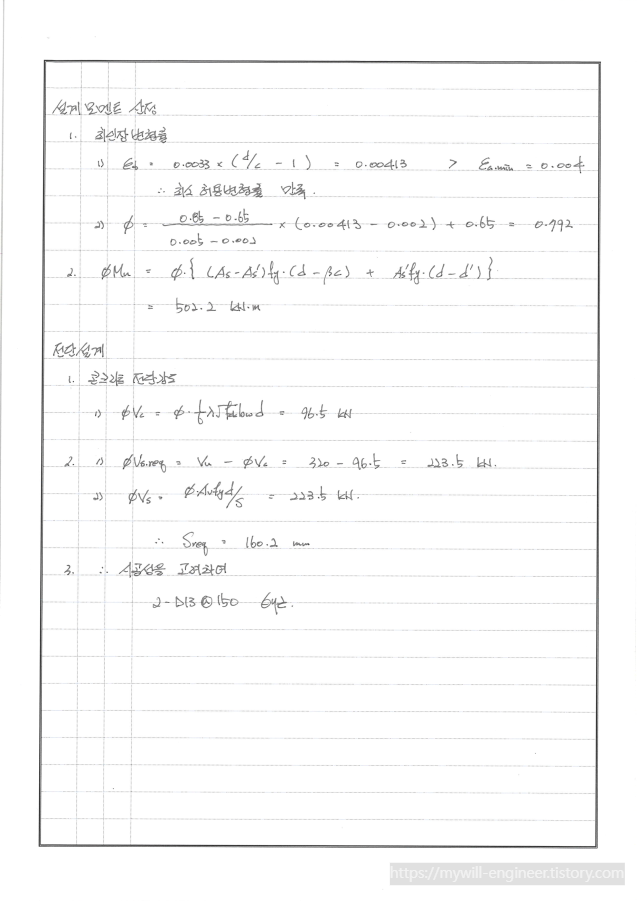 설계 모멘트 산정
1. 최외단 변형률
1) εt = 0.0033 × (d/c - 1) = 0.00413 > εa.min = 0.004
∴ 최소 허용변형률 만족.
2) φ = (0.85 - 0.65)/(0.005 - 0.002) × (0.00413 - 0.002) + 0.65 = 0.792
2. φMn = φ·{ (As - As')fy·(d - βc) + As'fy·(d - d') }
= 502.2 kN·m
전단설계
1. 콘크리트 전단강도
1) φVc = φ·1/6 λ√fck bw d = 96.5 kN
2. 1) φVs.req = Vu - φVc = 320 - 96.5 = 223.5 kN.
2) φVs = φ·Av fy d/s = 223.5 kN.
∴ Sreq = 160.2 mm
3. ∴ 시공성을 고려하여
2-D13 @ 150
https://mywill-engineer.tistory.com